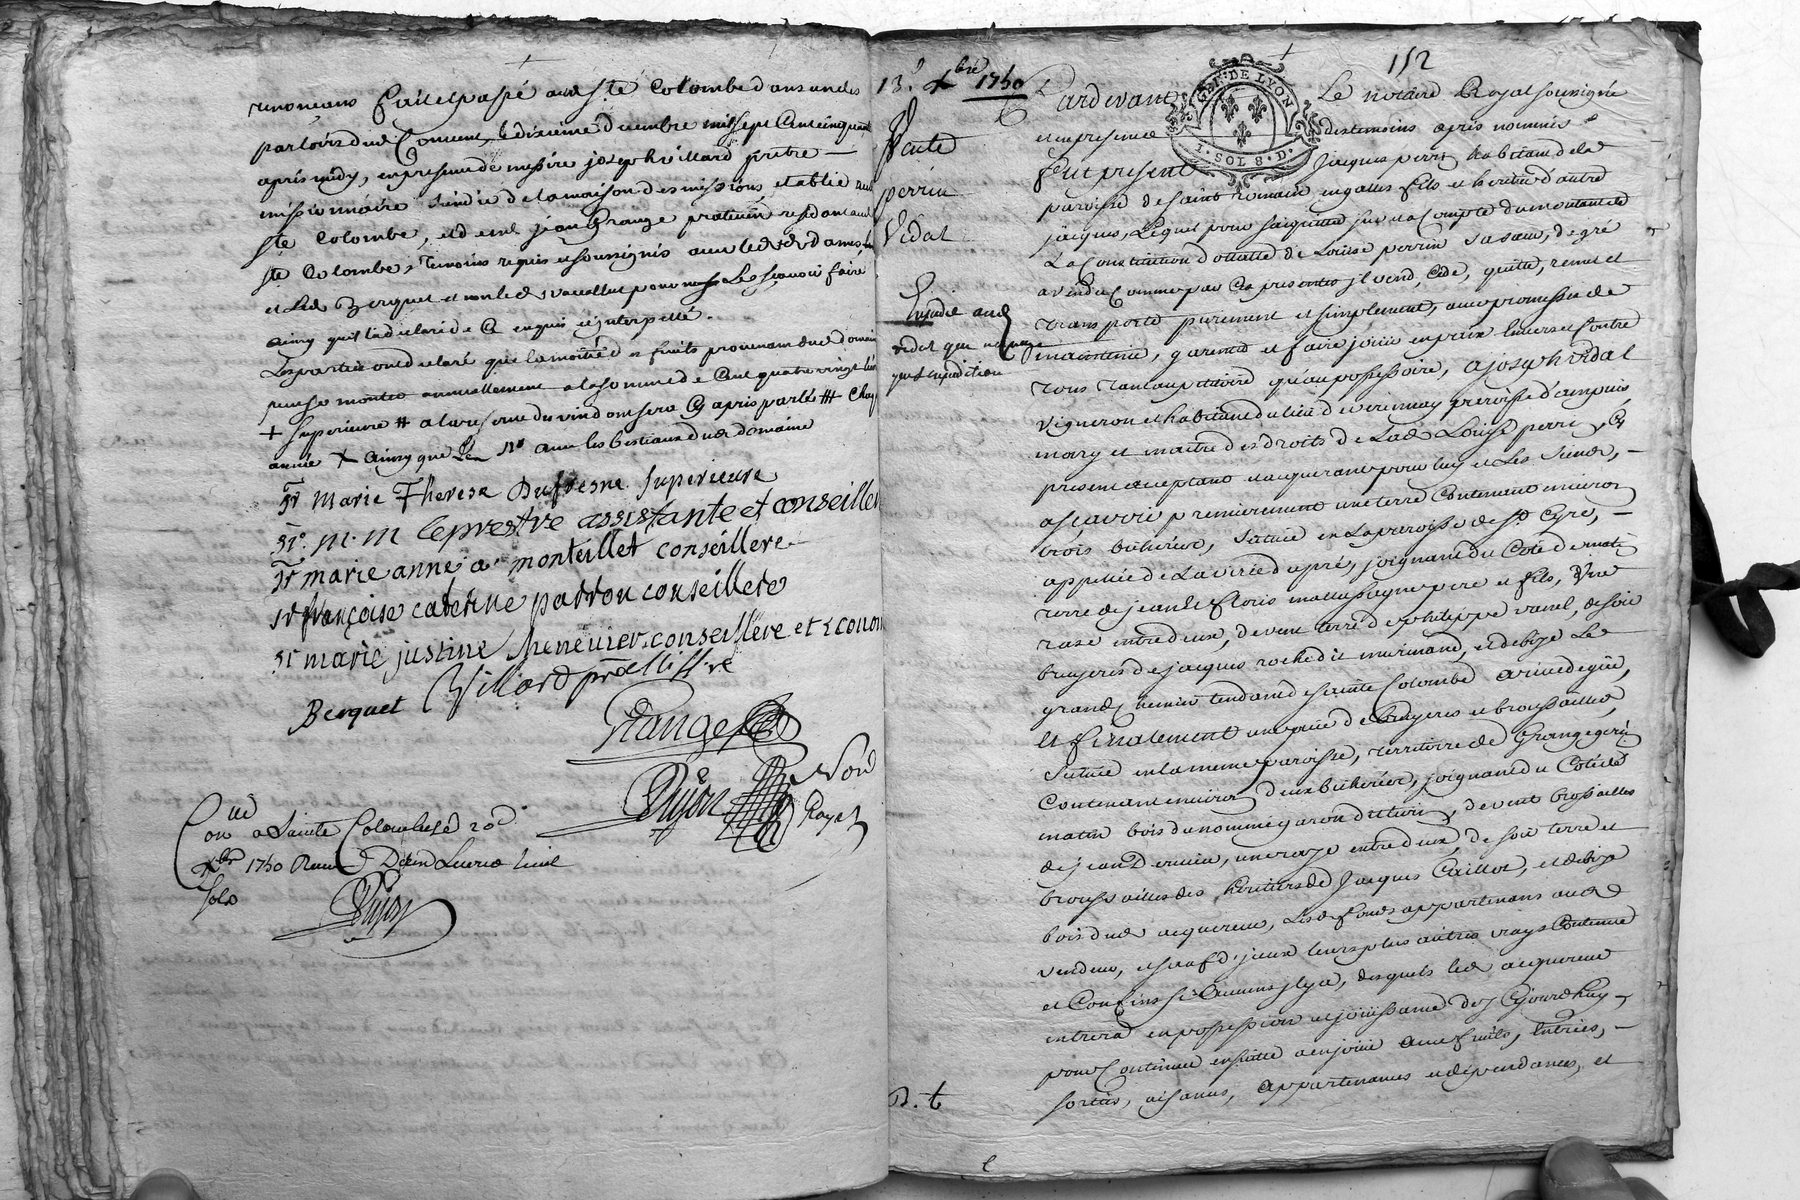 renoncians fait et passé aud ste Colombe dans un des
parloirs dud Convent, le dixieme decembre mil sept Cent cinquante
apres midy, en presence de messire joseph villard pretre
missionnaire sindic de la maison des missions etablie aud
ste Colombe, et de mr jean Grange praticien residant aud
ste Colombe, temoins requis et soussignés avec lesd dames
et led Berquet et non led pour ne le sçavoir faire
ainsy qu'il a declaré de ce enquis et interpellé.
Les parties ont declaré que la moitié des fruits provenant dud domaine
annuellement a la somme de Cent quatre vingt
+ superieure # a la reserve du vin dont sera cy apres parlé # Chaq
année + ainsy que les bestiaux dud domaine
Sr Marie Therese Dufresne Superieure
Sr. m. m leprestre assistante et conseillere
Sr marie anne a monteillet conseillere
Sr françoise caterine patron conseillere
Sr marie justine Chenevier conseillere et Econom
Villard ptre Missre
Berquet
Grange
Dujon
Con.lé a Sainte Colombe le 20
xbre 1750 Reçu
solz
Dujon
13. xbre 1750
152
Vente
perrin
Vidal
Expedié aud
vidal
GEN. DE LYON
1 · SOL 8 · D.
Pardevant Le notaire Royal soussigné
et en presence des temoins apres nommés
fut present Jacques perrin habitant de la
paroisse de saint romain en galles fils et heritier d'autre
jacques, Lequel pour s'aquitter sur et a Compte du montant de
La Constitution dottalle de Louise perrin sa sœur, de gré
a vendu Comme par Ces presentes il vend, Cede, quitte, remet et
transporte purement et simplement, avec promesse de
maintenir, garentir et faire jouir en paix envers et Contre
tous tant au petitoire qu'au possessoire, a joseph vidal
vigneron et habitant du lieu de verennay paroisse d'ampuis
mary et maitre des droits de Lad Louise perrin, Cy
present acceptant et acquerant pour luy et Les Siens,
asçavoir premierement une terre Contenant environ
trois bicherées, Scituée en La paroisse de St Cyre,
appellée de La virie d'apré, joignant du Coté de matin
terre de jean et floris pere et fils, Une
raze entre deux, de vent terre de philippe ravel, de soir
bruyeres de jacques roche dit murinand, et de bize Le
grand Chemin tendant de sainte Colombe a rivedegier,
Et finalement une piece de bruyeres et broussailles,
Scituée en la meme paroisse, territoire de
Contenant environ deux bicherées, joignant du Coté de
matin bois du nommé garon , de vent brossailles
de jean , une raze entre deux, de soir terre et
broussailles des heritiers de Jacques Caillot, et de bize
bois dud acquereur, Lesd fonds appartenans aud
vendeur, et sauf d'jceux leurs plus autres vrays Contenue
et Confins sy Aucuns jl y a, desquels led acquereur
entrera en possession et jouissance dez Cejourdhuy,
pour Continuer ensuitte a en jouir avec fruits, Entrées,
sorties, aisances, appartenances et dependances, et